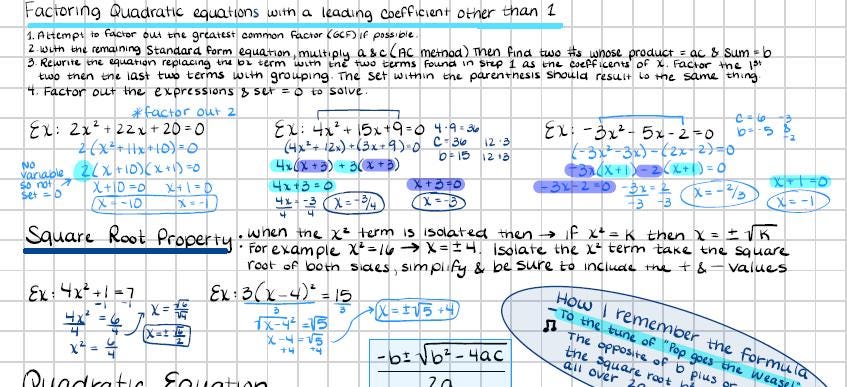 Factoring Quadratic equations with a leading coefficient other than 1
1. Attempt to factor out the greatest common factor (GCF) if possible.
2. with the remaining Standard form equation, multiply a & c (AC method) Then find two #s whose product = ac & sum = b
3. Rewrite the equation replacing the bx term with the two terms found in step 1 as the coefficients of x. Factor the 1st
two then the last two terms with grouping. The set within the parenthesis should result to the same thing.
4. Factor out the expressions & set = 0 to solve.
*factor out 2
Ex: 2x² + 22x + 20 = 0
2(x² + 11x + 10) = 0
2(x+10)(x+1) = 0
No variable so not set = 0
x+10=0 x+1=0
x=-10 x=-1
Ex: 4x² + 15x + 9 = 0
4·9=36
(4x² + 12x) + (3x + 9) = 0
c=36 12·3
b=15 12+3
4x(x+3) + 3(x+3)
4x+3=0 x+3=0
4x/4 = -3/4 x=-3/4 x=-3
Ex: -3x² - 5x - 2 = 0
c=6 -3
b=-5 -2
(-3x² - 3x) - (2x - 2) = 0
-3x(x+1) - 2(x+1) = 0
-3x-2=0 -3x/-3 = 2/-3 x=-2/3
x+1=0
x=-1
Square Root Property: when the x² term is isolated then → if x² = K then x = ± √K
For example x²=16 → x = ±4. Isolate the x² term take the square
root of both sides, simplify & be sure to include the + & - values
Ex: 4x² + 1 = 7
-1 -1
4x²/4 = 6/4
x² = 6/4
x = √6/√4
x = ± √6/2
Ex: 3(x-4)² = 15
3 3
√x-4² = √5
x-4 = √5
+4 +4
x = ±√5 + 4
-b ± √b² - 4ac
2a
How I remember the formula
- To the tune of "Pop goes the weasel"
The opposite of b plus or
the square root
all over
Quadratic Equation